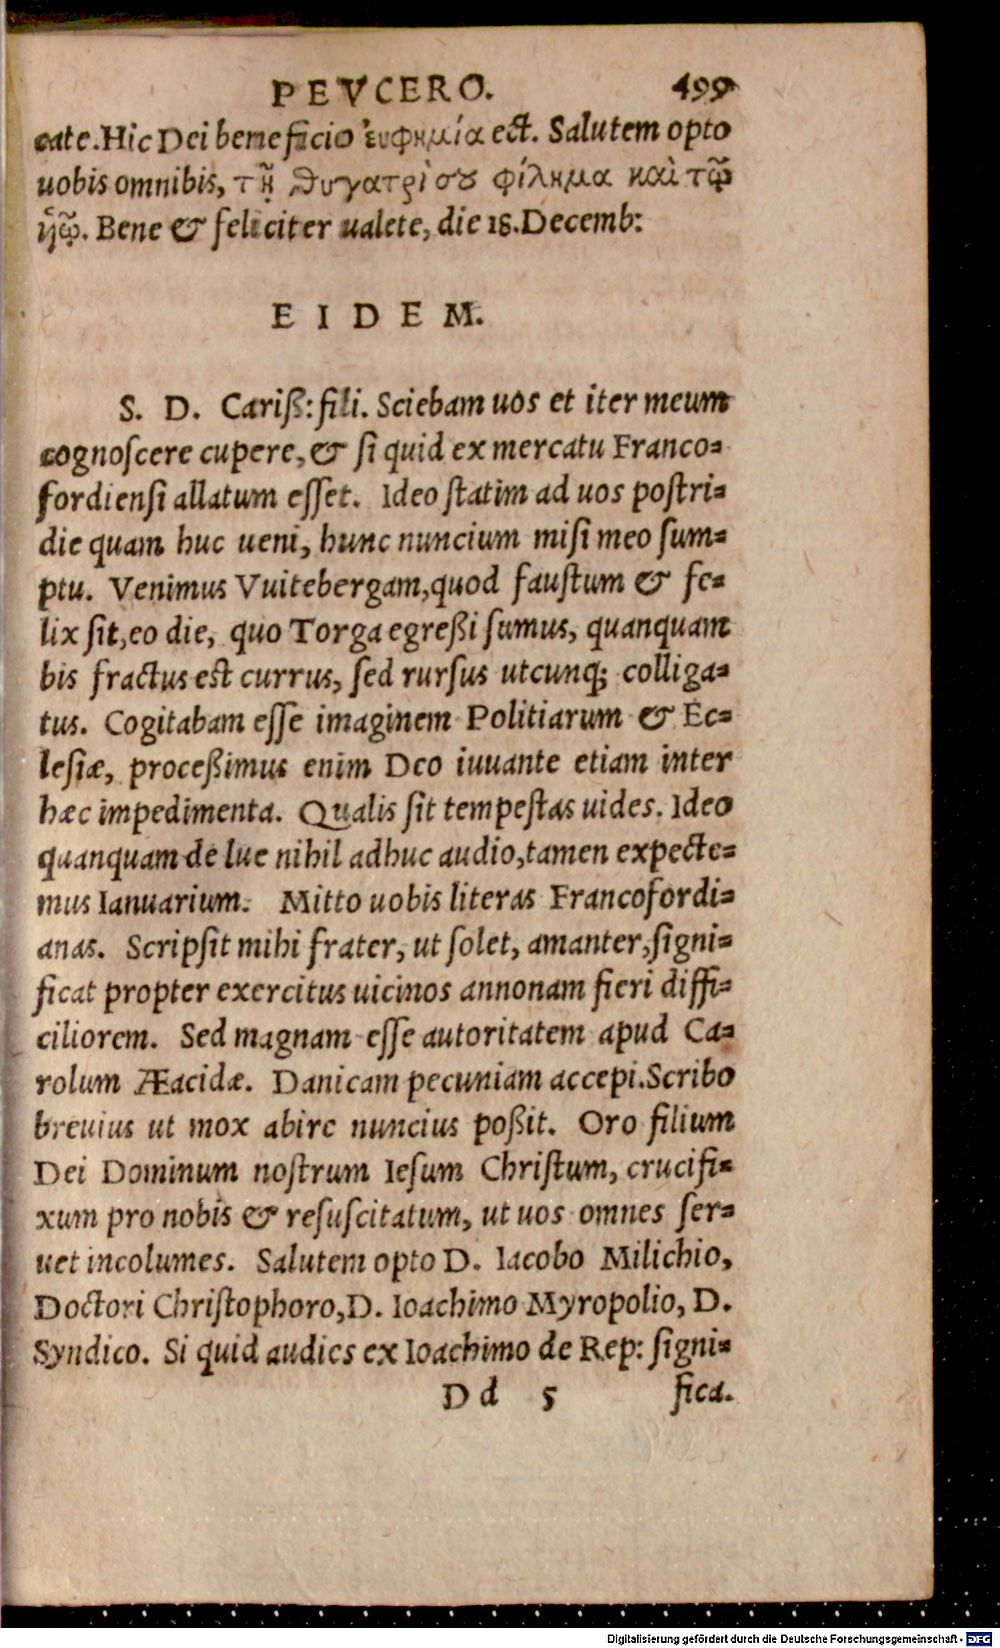 PEVCERO. 499
cate. Hic Dei beneficio ἐυφημία est. Salutem opto
uobis omnibis, τῆ θυγατρὶ σου φίλημα καὶ τῶ
ὑῶ. Bene & feliciter ualete, die 18. Decemb:
EIDEM.
S. D. Cariß: fili. Sciebam uos et iter meum
cognoſcere cupere, & ſi quid ex mercatu Franco=
fordienſi allatum eſſet. Ideo ſtatim ad uos poſtri=
die quam huc ueni, hunc nuncium miſi meo ſum=
ptu. Venimus Vuitebergam, quod fauſtum & fe=
lix ſit, eo die, quo Torga egreßi ſumus, quanquam
bis fractus est currus, ſed rurſus utcunq; colliga=
tus. Cogitabam eſſe imaginem Politiarum & Ec=
leſiæ, proceßimus enim Deo iuuante etiam inter
hæc impedimenta. Qualis ſit tempeſtas uides. Ideo
quanquam de lue nihil adhuc audio, tamen expecte=
mus Ianuarium. Mitto uobis literas Francofordi=
anas. Scripſit mihi frater, ut ſolet, amanter, ſigni=
ficat propter exercitus uicinos annonam fieri diffi=
ciliorem. Sed magnam eſſe autoritatem apud Ca=
rolum Æacidæ. Danicam pecuniam accepi. Scribo
breuius ut mox abire nuncius poßit. Oro filium
Dei Dominum noſtrum Ieſum Chriſtum, crucifi=
xum pro nobis & reſuſcitatum, ut uos omnes ſer=
uet incolumes. Salutem opto D. Iacobo Milichio,
Doctori Chriſtophoro, D. Ioachimo Myropolio, D.
Syndico. Si quid audies ex Ioachimo de Rep: ſigni=
Dd 5 fica.
Digitalisierung gefördert durch die Deutsche Forschungsgemeinschaft - DFG